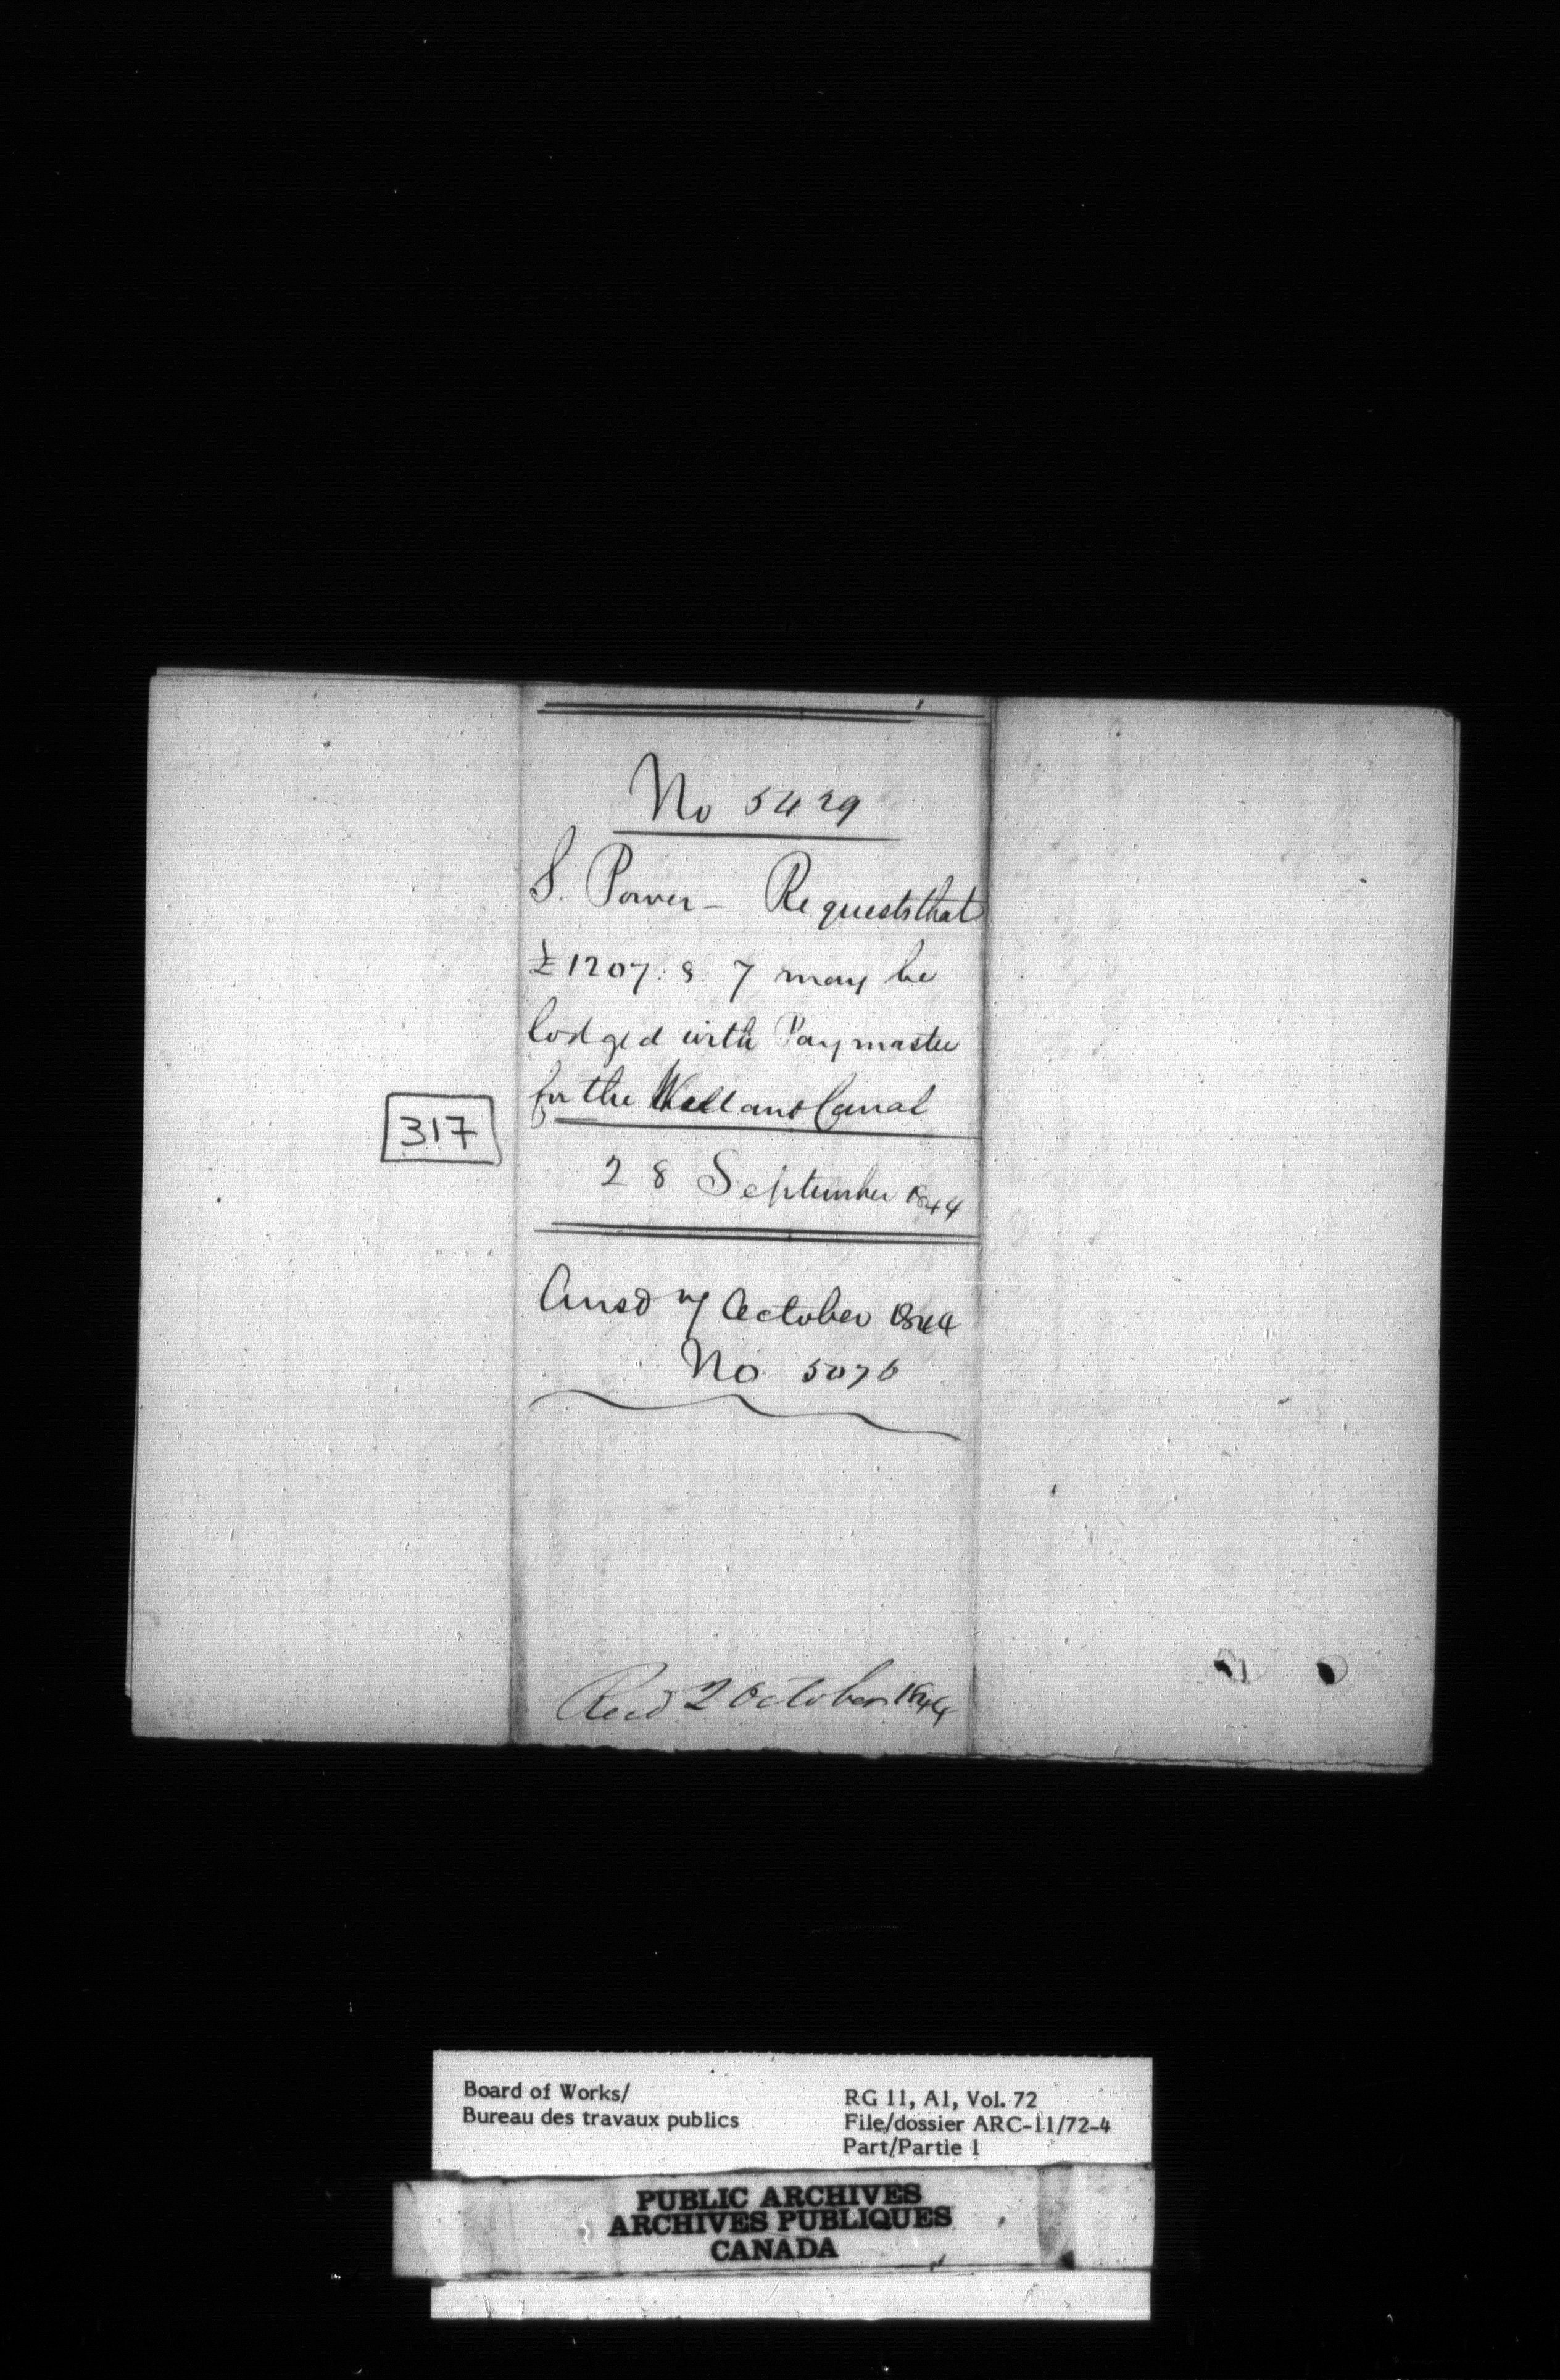 No 5429
S. Power - Requests that
£1207: 8. 7 may be
lodged with Paymaster
for the Welland Canal
317
28 September 1844
Ansd 7 October 1844
No 5076
Recd 2 October 1844
Board of Works/
Bureau des travaux publics
RG 11, A1, Vol. 72
File/dossier ARC-11/72-4
Part/Partie 1
PUBLIC ARCHIVES
ARCHIVES PUBLIQUES
CANADA